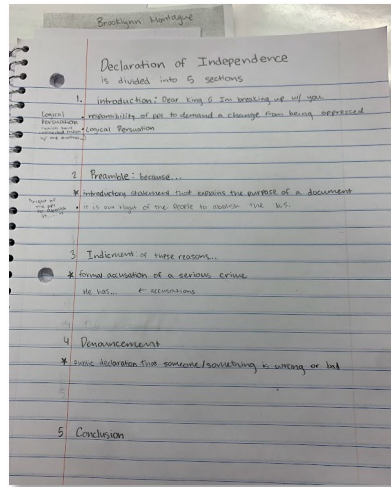 Brooklynn Montague
Declaration of Independence
is divided into 5 sections
1. introduction: Dear King G Im breaking up w/ you
• responsibility of ppl to demand a change from being oppressed
Logical
Persuasion
• Logical Persuation
2 Preamble: because...
* introductory statement that explains the purpose of a document
• it is our right of the people to abolish the
3 Indicment: of these reasons...
* formal accusation of a serious crime
He has... ← accusations
4 Denouncement
* public declaration that someone/something is wrong or bad
5 Conclusion